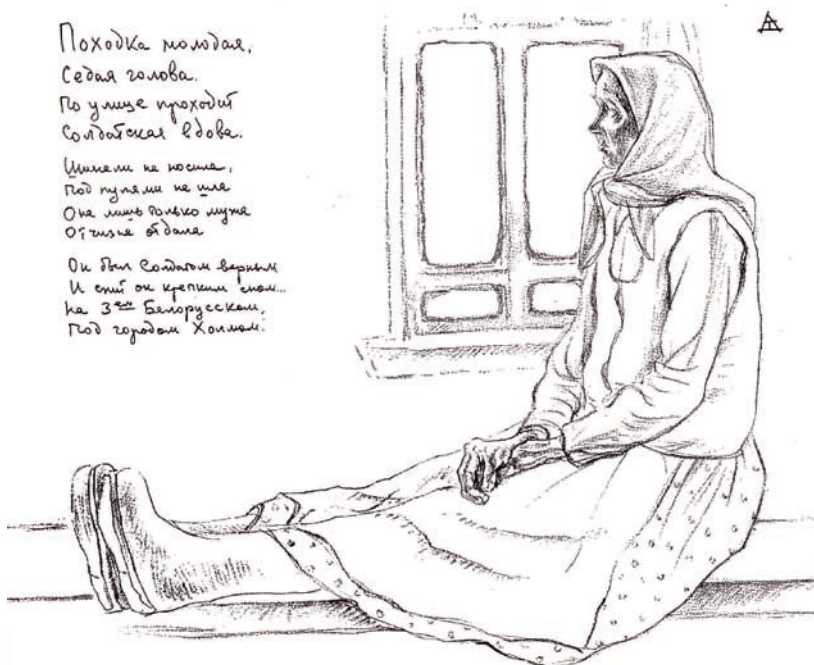 Походка молодая,
Седая голова.
По улице проходит
Солдатская вдова.
Шинели не носила,
Под пулями не шла
Она лишь только мужа
Отчизне отдала
Он был солдатом верным
И спит он крепким сном...
На 3ем Белорусском,
Под городом Холмом.